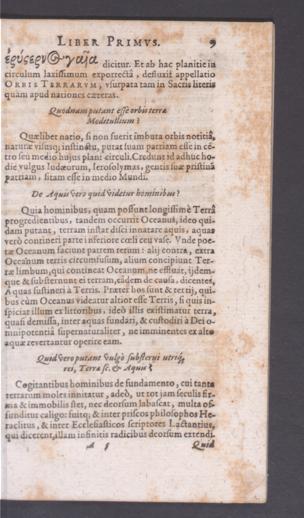 LIBER PRIMVS. 9
dicitur. Et ab hac planitie in
circulum laxissimum exporrectâ, defluxit appellatio
ORBIS TERRARVM, vsurpata tam in Sacris literis
quàm apud nationes cæteras.
Quodnam putant esse orbis terræ
Medetullium?
Quælibet natio, si non fuerit imbuta orbis notitiâ,
naturæ visusq; instinctu, putat suam patriam esse in cẽ-
tro seu medio hujus plani circuli. Credunt id adhuc ho-
die vulgus Iudæorum, Ierosolymas, gentis suæ pristinã
patriam, sitam esse in medio Mundi.
De Aquis vero quid videtur hominibus?
Quia hominibus, quam possunt longissimè Terrâ
progredientibus, tandem occurrit Oceanus, ideo qui-
dam putant, terram instar disci innatare aquis, aquas
verò contineri parte inferiore cœli ceu vase. Vnde poe-
tæ Oceanum faciunt patrem rerum: alij contra, extra
Oceanum terris circumfusum, alium concipiunt Ter-
ræ limbum, qui contineat Oceanum, ne effluat, ijdem-
que & substernunt ei terram, eâdem de causa, dicentes,
Aquas sustineri à Terris. Præter hos sunt & tertij, qui-
bus cùm Oceanus videatur altior esse Terris, si quis in-
spiciat illum ex littoribus, ideò illis existimatur terra,
quasi demissa, inter aquas fundari, & custodiri à Dei o-
mnipotentiâ supernaturaliter, ne imminentes ex alto
aquæ revertantur operire eam.
Quid vero putant vulgò substerni utriq;
rei, Terræ sc. & Aquis?
Cogitantibus hominibus de fundamento, cui tanta
terrarum moles innitatur, adeò, ut tot jam seculis fir-
ma & immobilis stet, nec deorsum labascat, multa of-
funditur caligo: suitq; & inter priscos philosophos He-
raclitus, & inter Ecclesiasticos scriptores Lactantius,
qui dicerent, illam infinitis radicibus deorsum extendi.
A 5 Quid